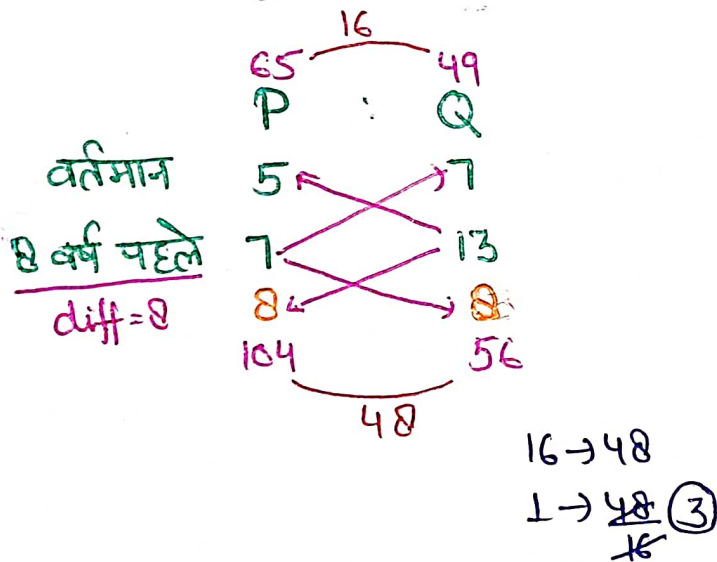 16
65 49
P : Q
वर्तमान 5 7
8 वर्ष पहले 7 13
diff=8 8 8
104 56
48
16→48
1→48/16 3